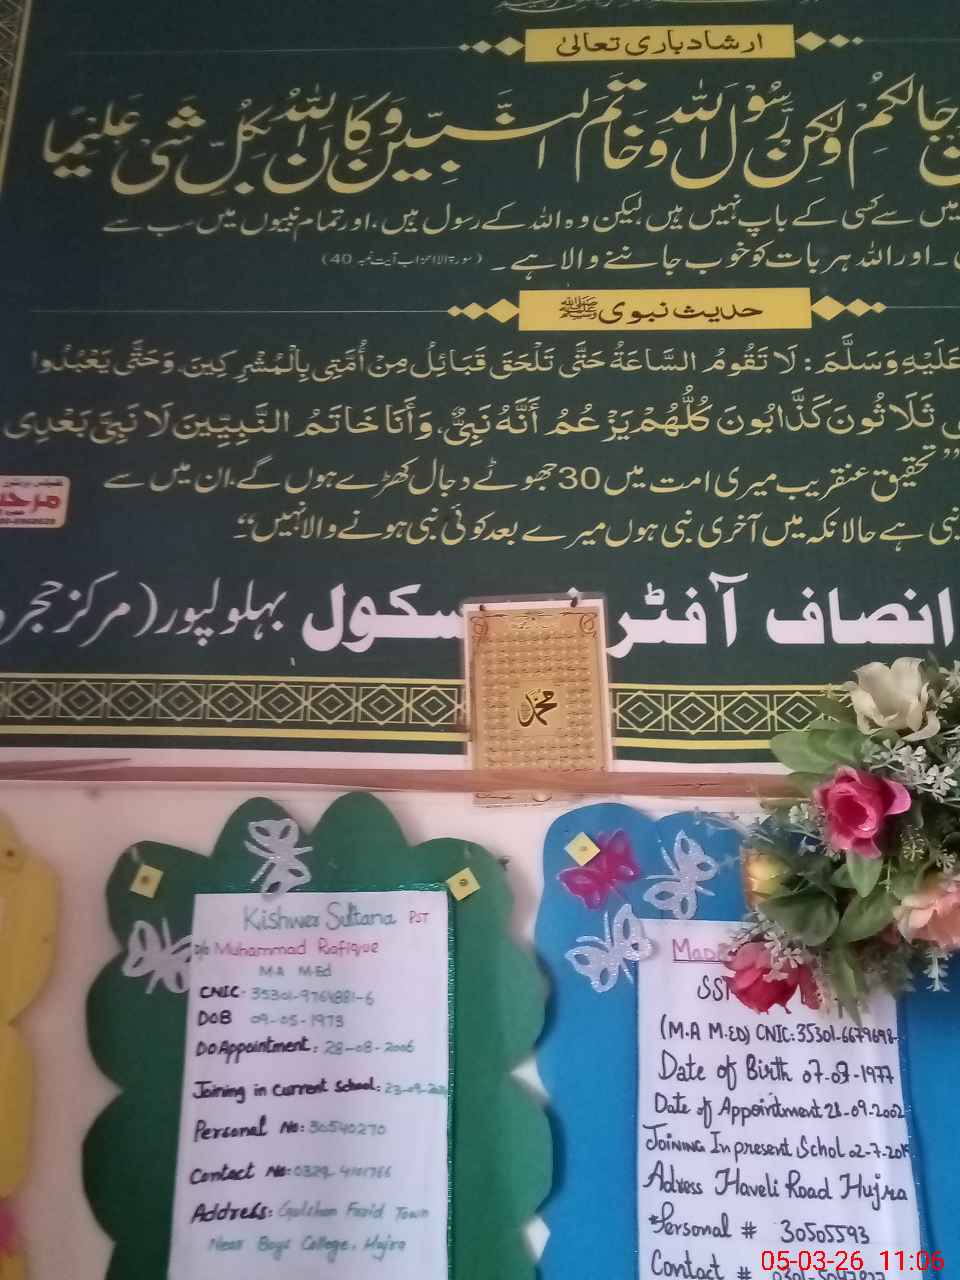 ارشاد باری تعالیٰ
جَالِكُمْ وَلٰكِنْ رَّسُوْلَ اللّٰهِ وَخَاتَمَ النَّبِيّٖنَ وَكَانَ اللّٰهُ بِكُلِّ شَيْءٍ عَلِيْمًا
میں سے کسی کے باپ نہیں ہیں لیکن وہ اللہ کے رسول ہیں، اور تمام نبیوں میں سب سے
۔ اور اللہ ہر بات کو خوب جاننے والا ہے۔ (سورۃ الاحزاب آیت نمبر 40)
حدیث نبوی ﷺ
عَلَيْهِ وَسَلَّمَ : لَا تَقُومُ السَّاعَةُ حَتَّى تَلْحَقَ قَبَائِلُ مِنْ أُمَّتِي بِالْمُشْرِكِينَ، وَحَتَّى يَعْبُدُوا
ثَلَاثُونَ كَذَّابُونَ كُلُّهُمْ يَزْعُمُ أَنَّهُ نَبِيٌّ، وَأَنَا خَاتَمُ النَّبِيِّينَ لَا نَبِيَّ بَعْدِي
”تحقیق عنقریب میری امت میں 30 جھوٹے دجال کھڑے ہوں گے، ان میں سے
نبی ہے حالانکہ میں آخری نبی ہوں میرے بعد کوئی نبی ہونے والا نہیں“۔
انصاف آفٹر سکول بہلولپور (مرکز حجرہ
محمد
Kishwer Sultana PST
D/o Muhammad Rafique
M.A M.Ed
CNIC: 35301-9764881-6
DOB 09-05-1973
D.O Appointment: 28-08-2006
Joining in Current School: 23-09-
Personal No: 30540270
Contact No: 0329-4101766
Address: Gulshan Farid Town
Near Boys College, Hujra
SST
(M.A M.ED) CNIC: 35301-6679698-
Date of Birth 07-07-1977
Date of Appointment 28-09-2002
Joining In present School 02-7-201
Adress Haveli Road Hujra
*Personal # 30505593
Contact #
05-03-26 11:06